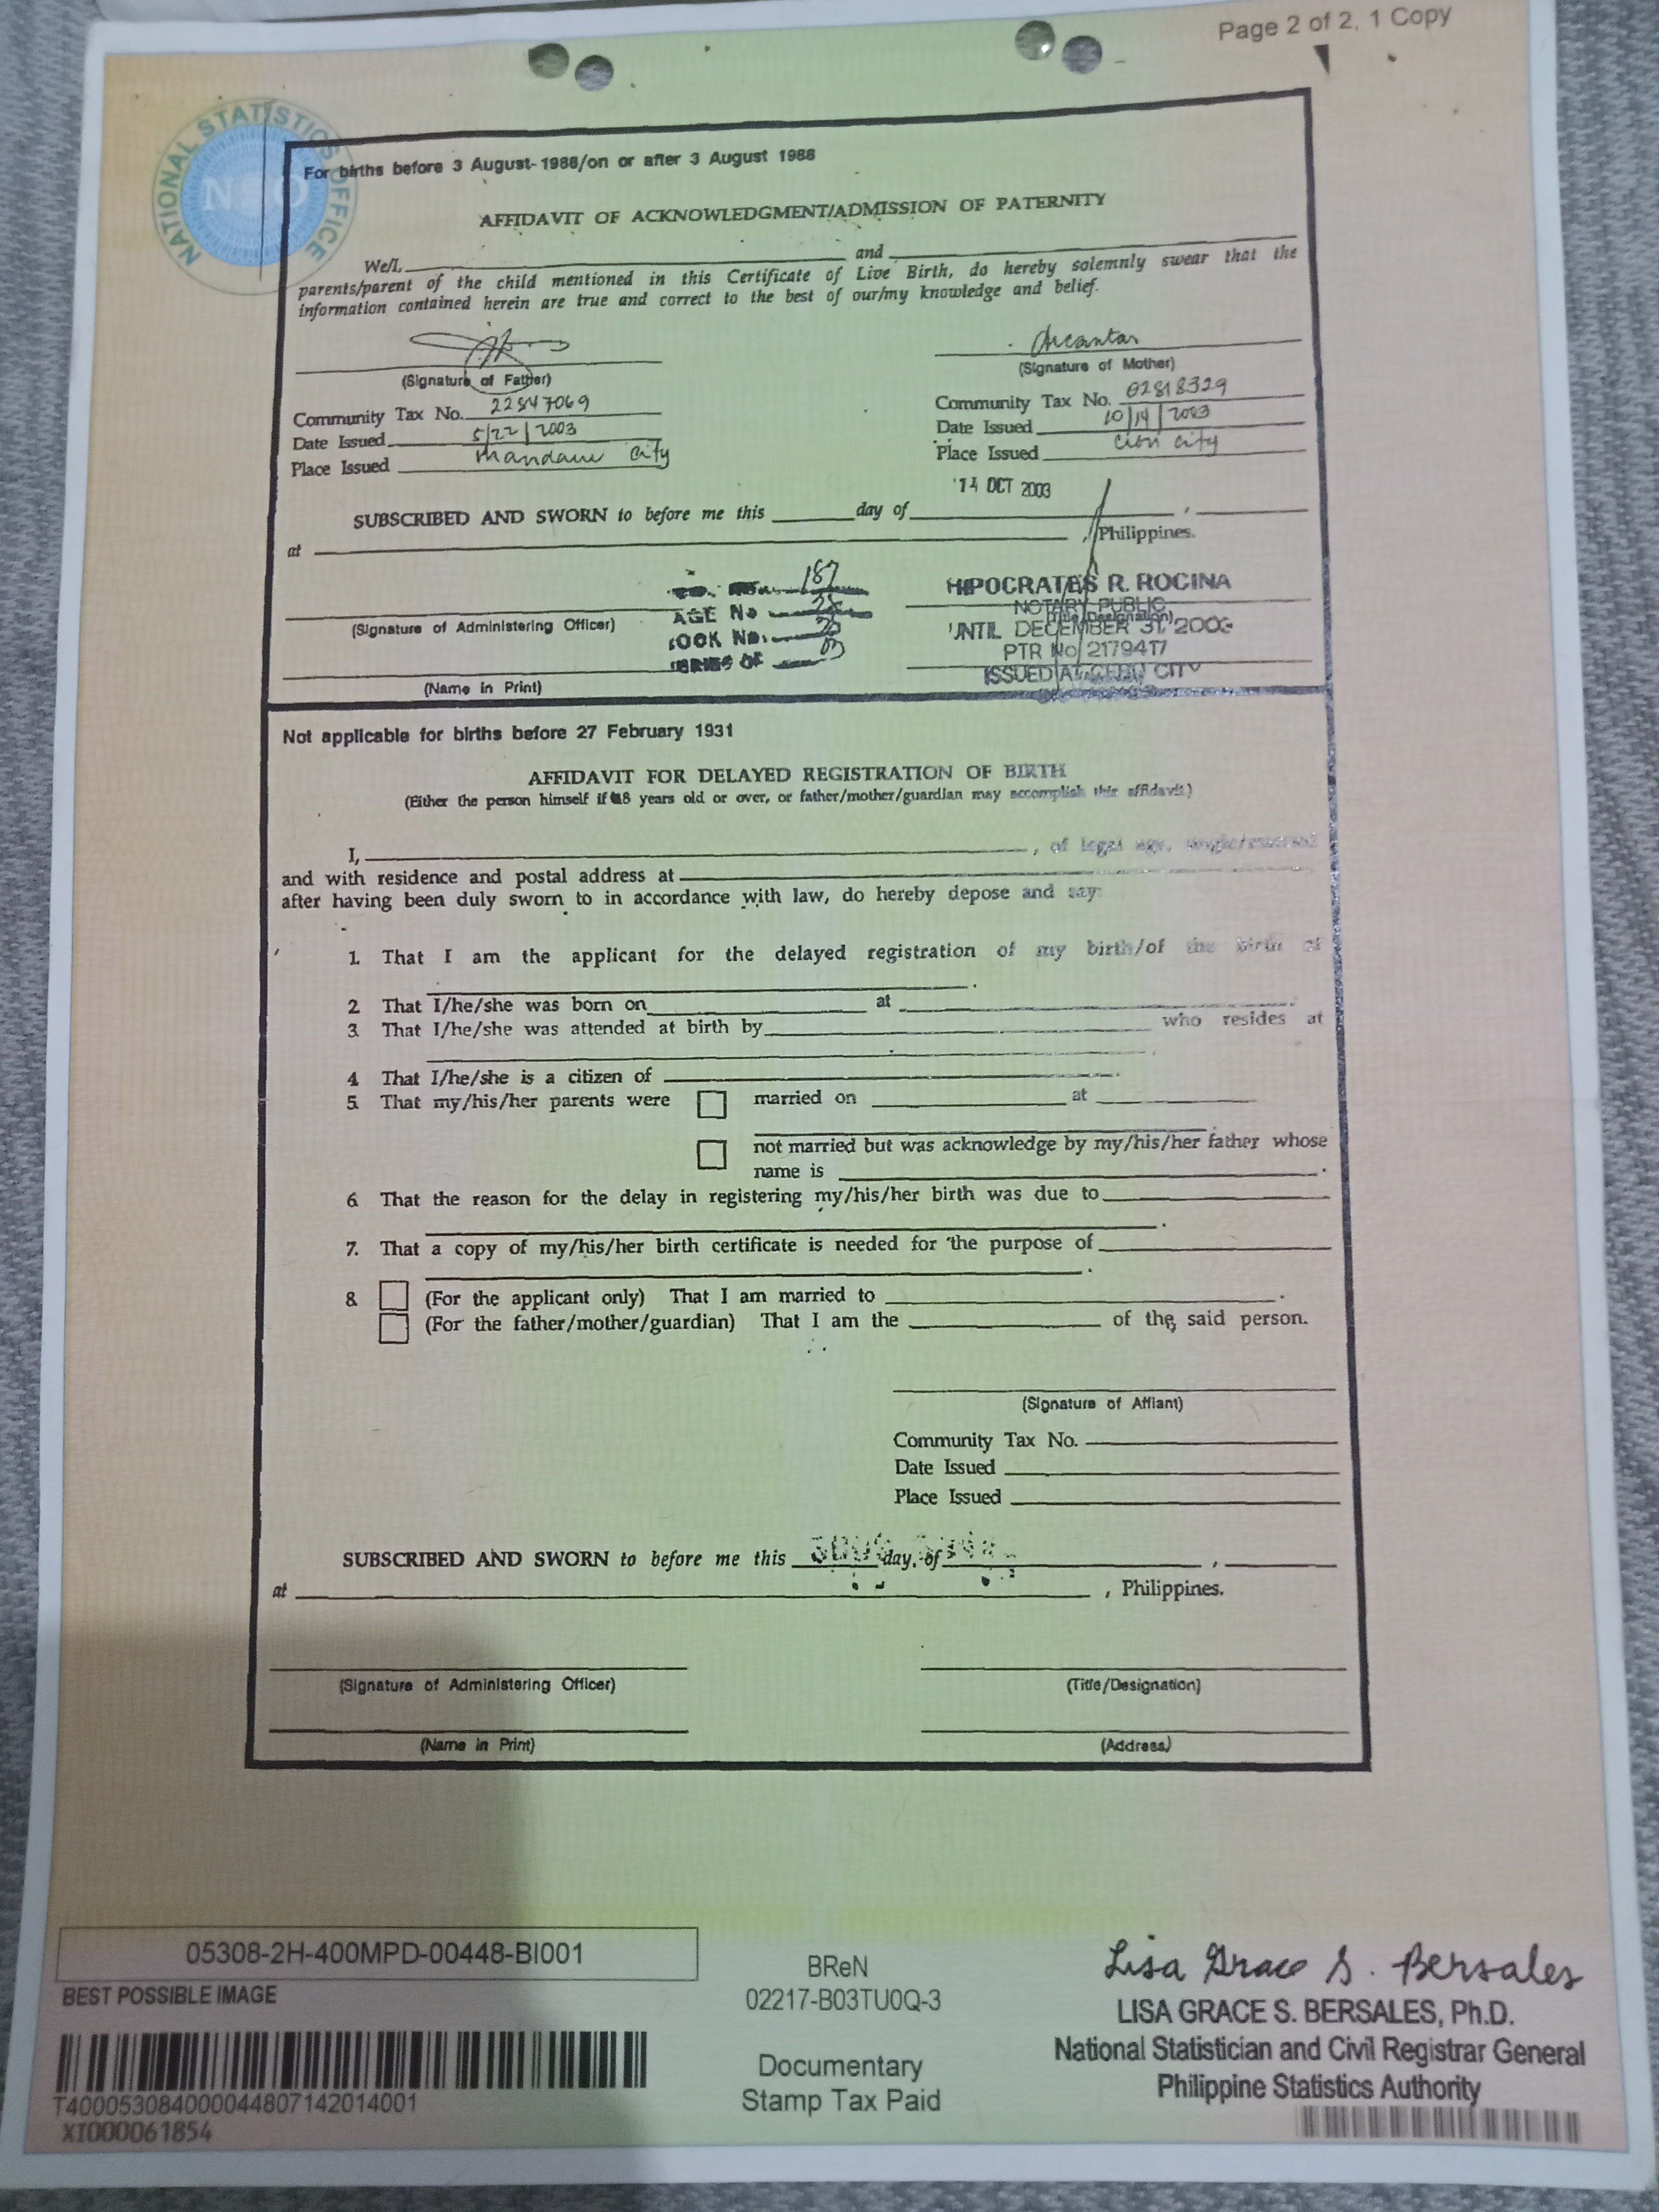 Page 2 of 2, 1 Copy
NATIONAL STATISTICS OFFICE
NSO
For births before 3 August 1988/on or after 3 August 1988
AFFIDAVIT OF ACKNOWLEDGMENT/ADMISSION OF PATERNITY
We/I, and
parents/parent of the child mentioned in this Certificate of Live Birth, do hereby solemnly swear that the
information contained herein are true and correct to the best of our/my knowledge and belief.
(Signature of Father) (Signature of Mother)
Community Tax No. 22847069 Community Tax No. 02818329
Date Issued 5/22/2003 Date Issued 10/14/2003
Place Issued Mandaue City Place Issued City
14 OCT 2003
SUBSCRIBED AND SWORN to before me this day of ,
at , Philippines.
187
HIPOCRATES R. ROCINA
AGE No
NOTARY PUBLIC
(Title/Designation)
(Signature of Administering Officer) OOK No. UNTIL DECEMBER 31, 2003
PTR No 2179417
SERIES OF 03
ISSUED AT CEBU CITY
(Name in Print)
Not applicable for births before 27 February 1931
AFFIDAVIT FOR DELAYED REGISTRATION OF BIRTH
(Either the person himself if 18 years old or over, or father/mother/guardian may accomplish this affidavit.)
I, , of legal age, single/married
and with residence and postal address at
after having been duly sworn to in accordance with law, do hereby depose and say:
1. That I am the applicant for the delayed registration of my birth/of the birth of
.
2. That I/he/she was born on at .
3. That I/he/she was attended at birth by who resides at
.
4. That I/he/she is a citizen of .
5. That my/his/her parents were married on at
not married but was acknowledge by my/his/her father whose
name is .
6. That the reason for the delay in registering my/his/her birth was due to
.
7. That a copy of my/his/her birth certificate is needed for the purpose of
.
8. (For the applicant only) That I am married to .
(For the father/mother/guardian) That I am the of the said person.
(Signature of Affiant)
Community Tax No.
Date Issued
Place Issued
SUBSCRIBED AND SWORN to before me this day of ,
at , Philippines.
(Signature of Administering Officer) (Title/Designation)
(Name in Print) (Address)
05308-2H-400MPD-00448-BI001
BEST POSSIBLE IMAGE
T400053084000044807142014001
XI000061854
BReN
02217-B03TU0Q-3
Documentary
Stamp Tax Paid
Lisa Grace S. Bersales
LISA GRACE S. BERSALES, Ph.D.
National Statistician and Civil Registrar General
Philippine Statistics Authority